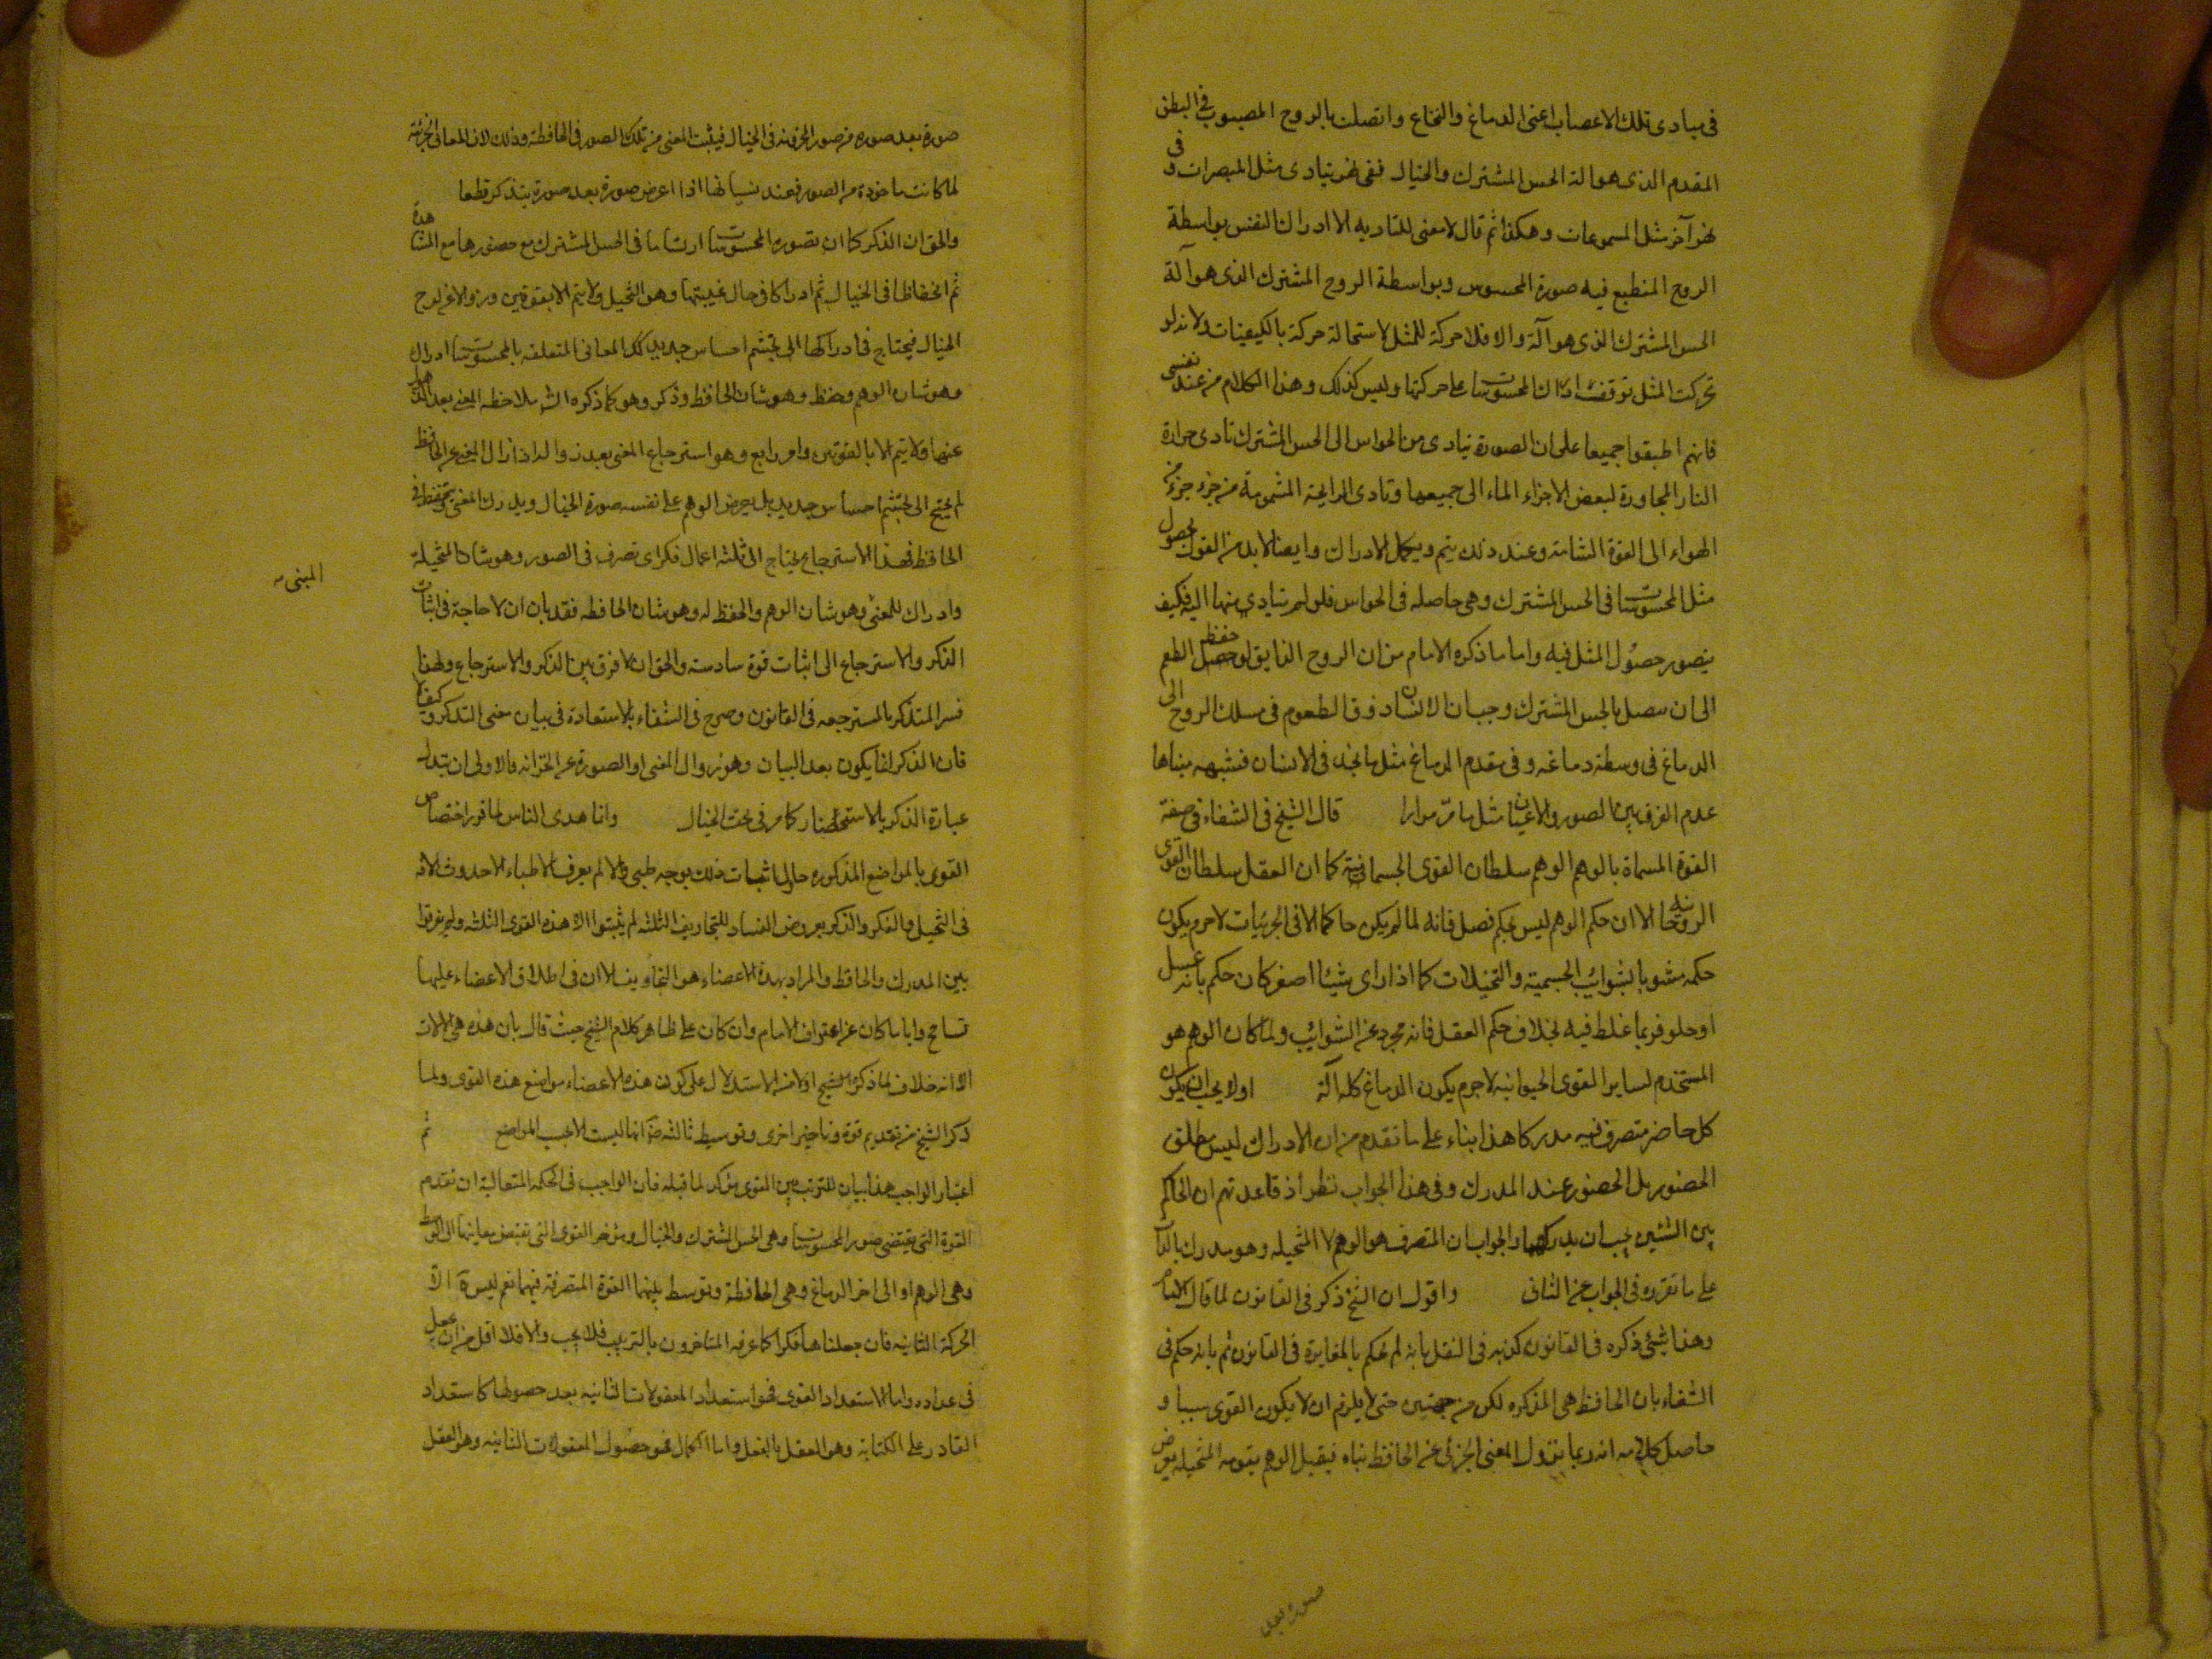 في مبادى تلك الاعصاب اعنى الدماغ والنخاع واتصلت بالروح المصبوب في البطن
المقدم الذى هو الة الحس المشترك والخيال ففى نهر يتادى مثل المبصرات و فى
نهر آخر مثل المسموعات وهكذا ثم قال لا معنى للتاديه الا ادراك النفس بواسطة
الروح المنطبع فيه صورة المحسوس وبواسطة الروح المشترك الذى هو آلة
الحس المشترك الذى هو آلة والا فلا حركة للمثل لاستحالة حركة بالكيفيات ولانه لو
تحركت المثل توقف ادراك المحسوسات على حركتها وليس كذلك وهذا الكلام من عند نفسى
فانهم اطبقوا جميعا على ان الصورة تتادى من الحواس الى الحس المشترك تادى حرارة
النار المجاورة لبعض الاجزاء الماء الى جميعها وتادى الرايحة المشمومة من جزء جزء من
الهواء الى القوة الشامة وعند ذلك يتم ويكمل الادراك وايضا لابد من القول بحصول
مثل المحسوسات فى الحس المشترك وهى حاصله فى الحواس فلو لم يتادي منها اليه فكيف
يتصور حصول المثل فيه واما ما ذكره الامام من ان الروح الذايق لو حفظ الطعم
الى ان يتصل بالحس المشترك وجب ان الانسان ذوق الطعوم فى مسلك الروح الى
الدماغ فى وسطة دماغه وفى مقدم الدماغ مثل ما يجد فى الانسان فشبهه مبناها
عدم الفرق بين الصور والاعيان مثل ما مر مرارا قال الشيخ فى الشفاء فى صفة
القوة المسماة بالوهم الوهم سلطان القوى الجسمانية كما ان العقل سلطان القوى
الروحانيه الا ان حكم الوهم ليس بحكم فصل فانه لما لم يكن حاكما الا فى الجزئيات لا جرم يكون
حكمه مشوبا بشوائب الجسمية والتخيلات كما اذا راى شيئا اصفر كان حكم بانه عسل
او حلو فربما غلط فيه بخلاف حكم العقل فانه مجرد عن الشوائب ولما كان الوهم هو
المستخدم لساير القوى الحيوانيه لا جرم يكون الدماغ كله آلة اولا يجب ان يكون
كل حاضر متصرف فيه مدركا هذا بناء على ما تقدم من ان الادراك ليس مطلق
الحضور بل الحضور عند المدرك وفى هذا الجواب نظر اذ قاعدتهم ان الحاكم
بين الشيئين يجب ان يدركهما والجواب ان المتصرف هو الوهم لا المتخيله وهو مدرك بالذات
على ما تقرر فى الجواب عن الثانى واقول ان الشيخ ذكر فى القانون لما قال الامام
وهذا شيئ ذكره فى القانون كذبه فى النقل بانه لم يحكم بالمغايرة فى القانون ثم بانه حكم فى
الشفاء بان الحافظة هى المذكره لكن من جهتين حتى لا يلزم ان لا يكون القوى سببا و
حاصل كلامه انه ربما يزول المعنى الجزئى عن الحافظ فيقبل الوهم بقوته المتخيله
صورة بعد صورة من صور المخزونه فى الخيال فيثبت المعنى من تلك الصور فى الحافظة وذلك لان المعانى الجزئية
لما كانت ماخوذة من الصور فعند نسيانها اذا اعرض صورة بعد صورة يتذكر قطعا
والحق ان الذكر كما ان تصوره المحسوسات ارتساما فى الحس المشترك مع حضورها مع المشاهدة
ثم انحفاظا فى الخيال ثم ادراكا فى حال غيبتها وهو التخيل ولا يتم الا بقوتين وزوالا عن لوح
الخيال فيحتاج فى ادراكها الى تجشم احساس جديد كذلك المعانى المتعلقه بالمحسوسات ادراك
وهو شان الوهم وحفظ وهو شان الحافظ وذكر وهو كما ذكره الش ملاحظه المعنى بعد الذهول
عنها ولا يتم الا بالقوتين وامر رابع وهو استرجاع المعنى بعد زواله اذا زال المعنى عن الحافظ
لم يحتج الى تجشم احساس جديد بل يعرض الوهم على نفسه صورة الخيال ويدرك المعنى ويحتفظ فى
الحافظ فهذا الاسترجاع يحتاج الى ثلثة اعمال فكر اى تصرف فى الصور وهو شان المتخيلة
وادراك للمعنى وهو شان الوهم والحفظ له وهو شان الحافظه فقد بان ان لا حاجة فى اثبات
الذكر والاسترجاع الى اثبات قوة سادسة والحق ان لا فرق بين الذكر والاسترجاع ولهذا
فسر المتذكر بالمسترجعه فى القانون وصرح فى الشفاء بالاستعادة فى بيان معنى التذكر وكيف لا
فان الذكر انما يكون بعد النسيان وهو زوال المعنى او الصورة عن الخزانه فالاولى ان تبدل
عبارة الذكر بالاستحضار كما مر فى بحث الخيال وانما هدى الناس لما قرر اختصاص
القوى بالمواضع المذكورة حاول اثبات ذلك بوجه طبى والا لم يعرف الاطباء الا حدوث الافه
فى التخيل والفكر والذكر بعروض الفساد للتجاويف الثلثه لم يثبتوا الا هذه القوى الثلثه ولم يفرقوا
بين المدرك والحافظ والمراد بهذه الاعضاء هو التجاويف الا ان فى اطلاق الاعضاء عليها
تسامح واياما كان عن اعتراف الامام وان كان على ظاهر كلام الشيخ حيث قال بان هذه هى الالات
الا انه خلاف لما ذكره الشيخ اولا من الاستدلال على كون هذه الاعضاء مواضع هذه القوى ولما
ذكر الشيخ من تقديم قوة وتاخير اخرى وتوسيط ثالثه انها ليست لا بحسب المواضع ثم
اعتبار الواجب هذا بيان للترتيب بين القوى مؤكد لما قبله فان الواجب فى الحكمة المتعالية ان تقدم
القوة التى يقتضى صور المحسوسات وهى الحس المشترك والخيال ويؤخر القوى التى تقتنص معانيها الى الوسط
وهى الوهم او الى اخر الدماغ وهى الحافظة وتوسط بينهما القوة المتصرفة فيهما نعم ليس الا
الحركة الثانيه فان جعلناها فكرا كما عرفه المتاخرون بالترتيب فلا يجب والا فلا اقل من ان يجعل
فى عداده واما الاستعداد القوى فهو استعداد المعقولات الثانيه بعد حصولها كاستعداد
القادر على الكتابة وهو العقل بالفعل واما الكمال فهو حصول المعقولات الثانيه وهو العقل